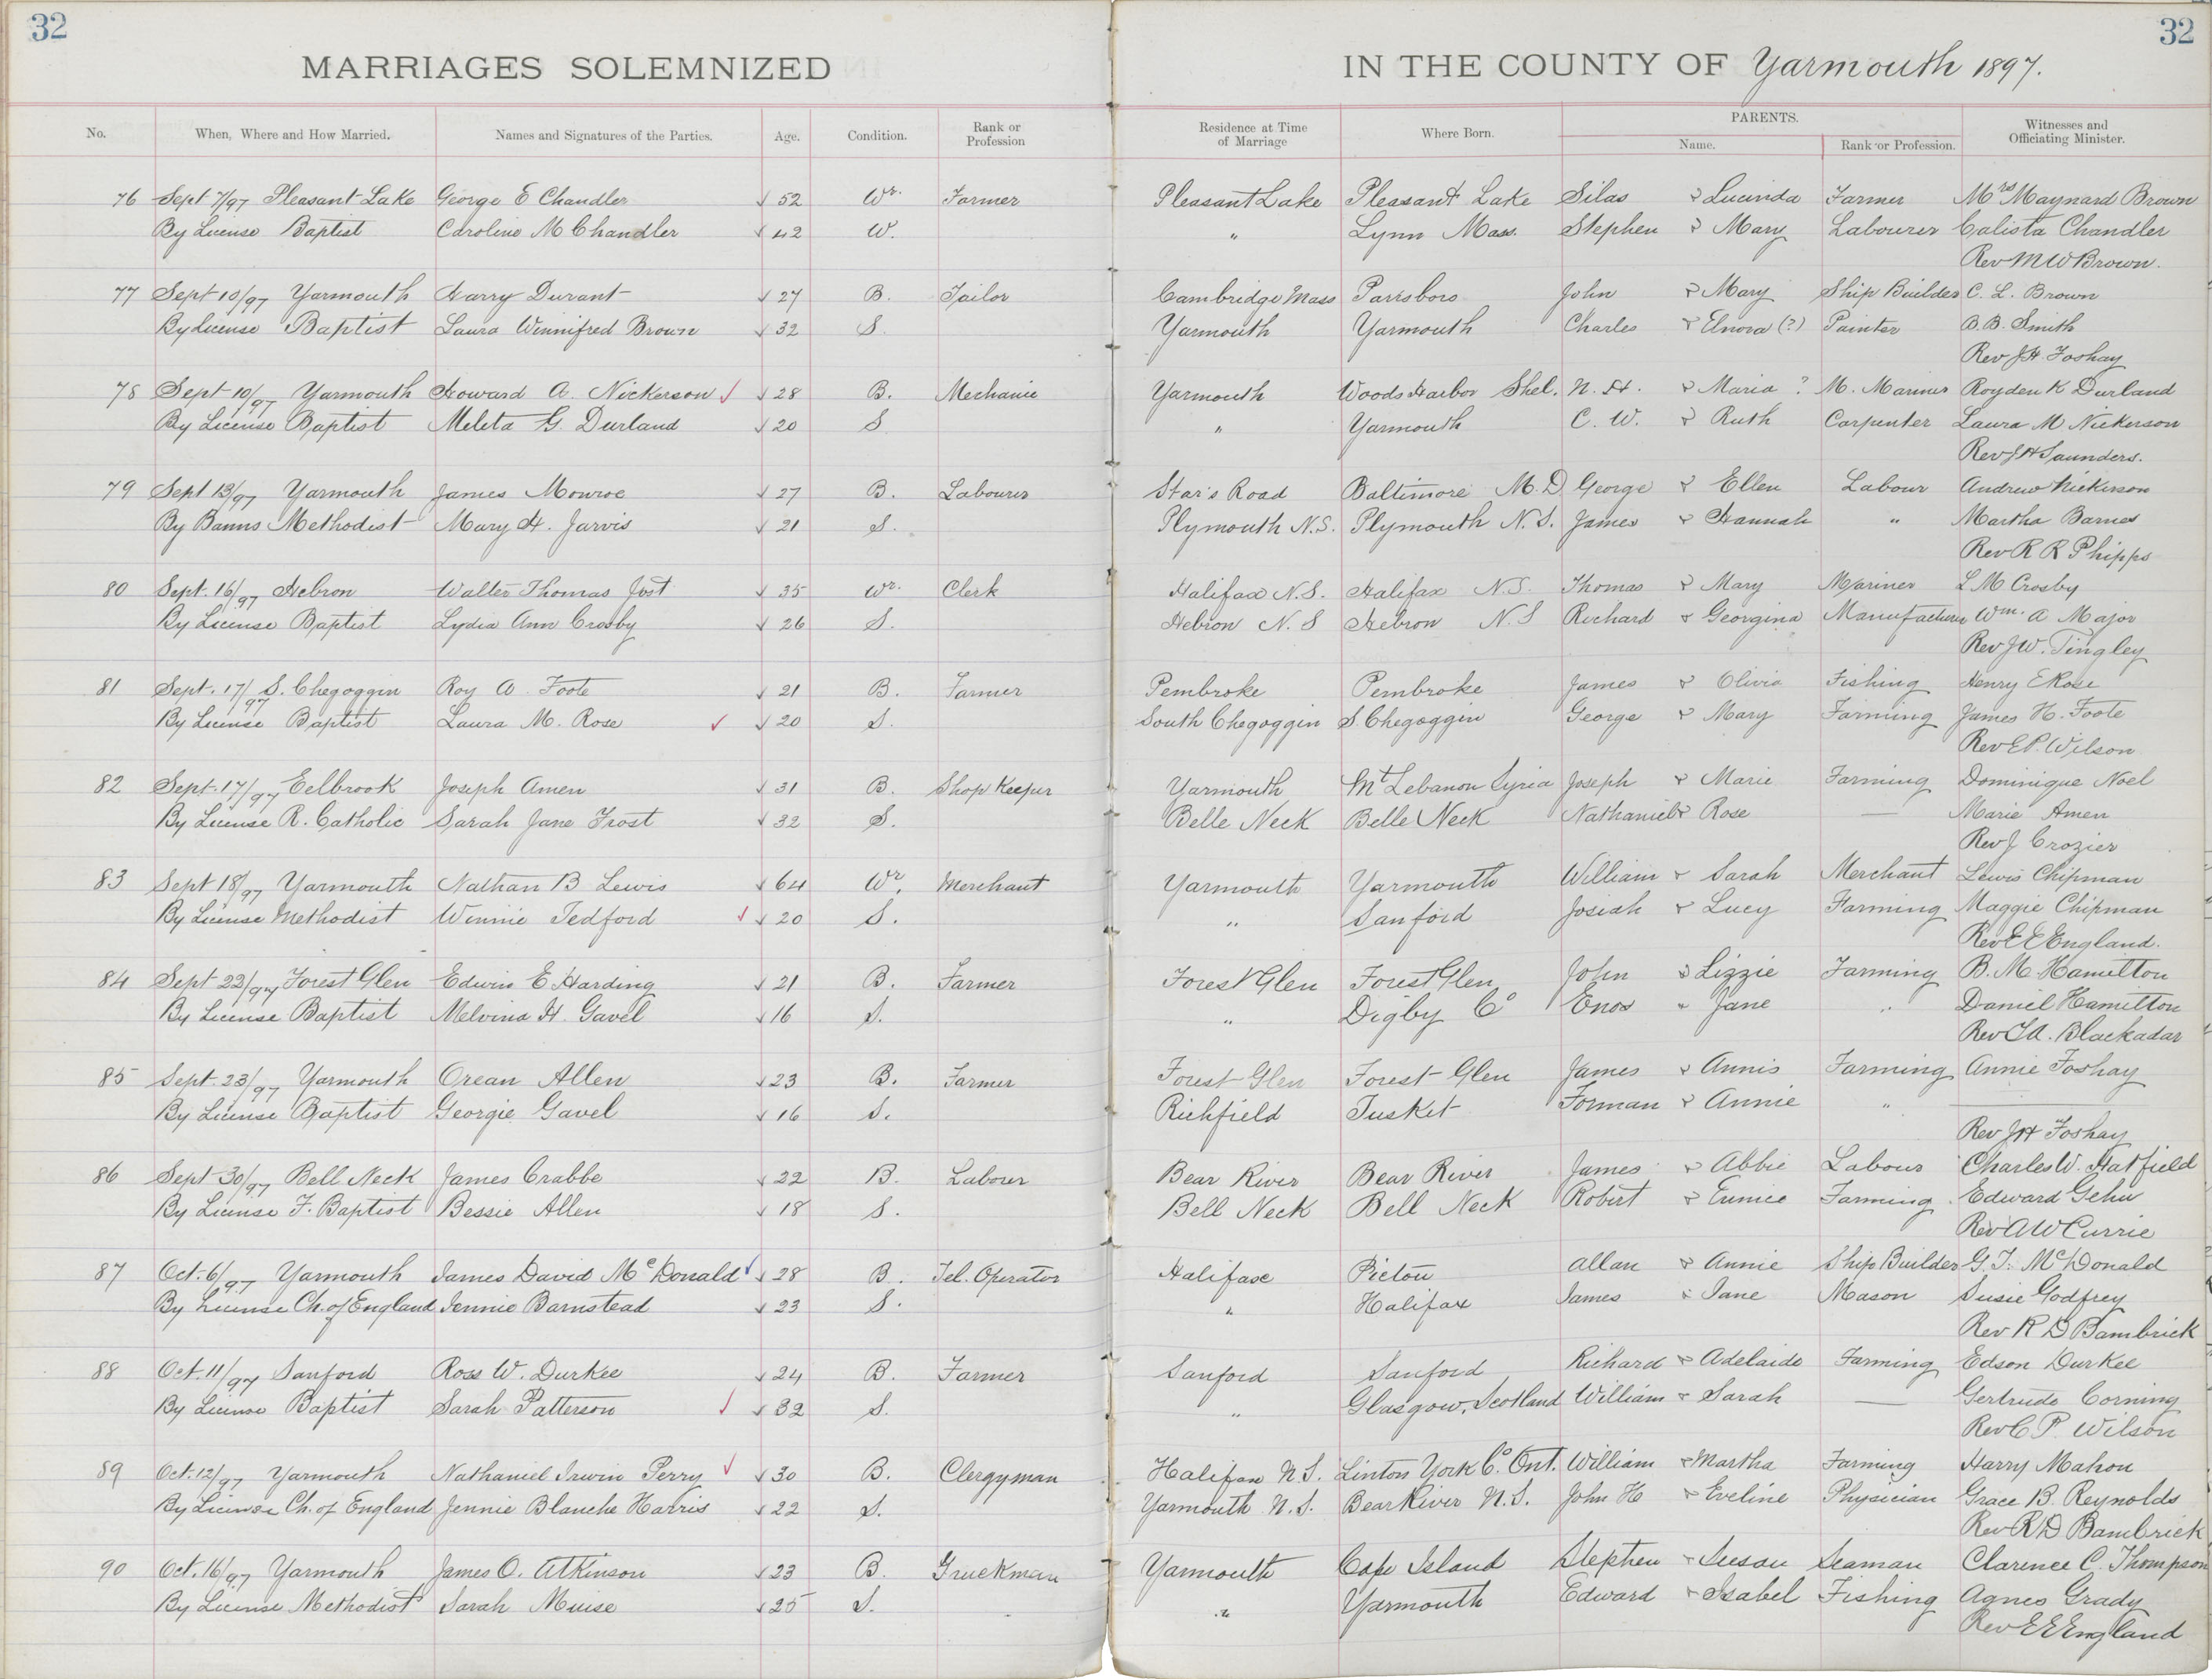 32
32
MARRIAGES SOLEMNIZED IN THE COUNTY OF Yarmouth 1897.
No. When, Where and How Married. Names and Signatures of the Parties. Age. Condition. Rank or Profession Residence at Time of Marriage Where Born. PARENTS. Name. Rank or Profession. Witnesses and Officiating Minister.
76 Sept 7/97 Pleasant Lake George E Chandler √ 52 Wr. Farmer Pleasant Lake Pleasant Lake Silas & Lucinda Farmer Mrs Maynard Brown
By License Baptist Caroline M Chandler √ 42 W. " Lynn Mass. Stephen & Mary Labourer Calista Chandler
Rev M W Brown.
77 Sept 10/97 Yarmouth Harry Durant √ 27 B. Tailor Cambridge Mass Parrsboro John & Mary Ship Builder C. L. Brown
By License Baptist Laura Winnifred Brown √ 32 S. Yarmouth Yarmouth Charles & Elnora (?) Painter B. B. Smith
Rev J H. Foshay
78 Sept 10/97 Yarmouth Howard A. Nickerson √ √ 28 B. Mechanic Yarmouth Woods Harbor Shel. N. H. & Maria ? M. Mariner Royden K Durland
By License Baptist Meleta G. Durland √ 20 S " Yarmouth C. W. & Ruth Carpenter Laura M Nickerson
Rev J H Saunders.
79 Sept 13/97 Yarmouth James Monroe √ 27 B. Labourer Star's Road Baltimore M.D George & Ellen Labour Andrew Nickerson
By Banns Methodist Mary H. Jarvis √ 21 S. Plymouth N.S. Plymouth N.S. James & Hannah " Martha Barnes
Rev R R Phipps
80 Sept. 16/97 Hebron Walter Thomas Jost √ 35 Wr. Clerk Halifax N.S. Halifax N.S. Thomas & Mary Mariner L M Crosby
By License Baptist Lydia Ann Crosby √ 26 S. Hebron N.S Hebron N.S Richard & Georgina Manufacturer Wm. A Major
Rev J W. Tingley
81 Sept. 17/97 S. Chegoggin Roy A. Foote √ 21 B. Farmer Pembroke Pembroke James & Olivia Fishing Henry E Rose
By License Baptist Laura M. Rose √ √ 20 S. South Chegoggin S. Chegoggin George & Mary Farming James H. Foote
Rev E P. Wilson
82 Sept. 17/97 Eelbrook Joseph Amen √ 31 B. Shop Keeper Yarmouth Mt Lebanon Syria Joseph & Marie Farming Dominique Noel
By License R. Catholic Sarah Jane Frost √ 32 S. Belle Neck Belle Neck Nathaniel & Rose — Marie Amen
Rev J Crozier
83 Sept 18/97 Yarmouth Nathan B Lewis √ 64 Wr. Merchant Yarmouth Yarmouth William & Sarah Merchant Lewis Chipman
By License Methodist Winnie Tedford √ √ 20 S. " Sanford Josiah & Lucy Farming Maggie Chipman
Rev E E England.
84 Sept 22/97 Forest Glen Edwin E Harding √ 21 B. Farmer Forest Glen Forest Glen John & Lizzie Farming B. M. Hamilton
By License Baptist Melvina H. Gavel √ 16 S. " Digby Co Enos & Jane " Daniel Hamilton
Rev T A. Blackadar
85 Sept. 23/97 Yarmouth Orean Allen √ 23 B. Farmer Forest Glen Forest Glen James & Annis Farming Annie Foshay
By License Baptist Georgie Gavel √ 16 S. Richfield Tusket Forman & Annie " —
Rev J H Foshay
86 Sept 30/97 Bell Neck James Crabbe √ 22 B. Labour Bear River Bear River James & Abbie Labour Charles W. Hatfield
By License F. Baptist Bessie Allen √ 18 S. Bell Neck Bell Neck Robert & Eunice Farming Edward Gehu
Rev A W Currie
87 Oct. 6/97 Yarmouth James David McDonald √ √ 28 B. Tel. Operator Halifax Pictou Allan & Annie Ship Builder G. T. McDonald
By License Ch. of England Jennie Barnstead √ 23 S. " Halifax James & Jane Mason Susie Godfrey
Rev R D Bambrick
88 Oct. 11/97 Sanford Ross W. Durkee √ 24 B. Farmer Sanford Sanford Richard & Adelaide Farming Edson Durkee
By License Baptist Sarah Patterson √ √ 32 S. " Glasgow, Scotland William & Sarah — Gertrude Corning
Rev C P Wilson
89 Oct. 12/97 Yarmouth Nathaniel Irwin Perry √ √ 30 B. Clergyman Halifax N.S. Linton York Co. Ont. William & Martha Farming Harry Mahon
By License Ch. of England Jennie Blanche Harris √ 22 S. Yarmouth N.S. Bear River N.S. John H & Eveline Physician Grace B. Reynolds
Rev R D Bambrick
90 Oct. 16/97 Yarmouth James O. Atkinson √ 23 B. Truckman Yarmouth Cape Island Stephen & Susan Seaman Clarence C. Thompson
By License Methodist Sarah Muise √ 25 S. " Yarmouth Edward & Isabel Fishing Agnes Grady
Rev E E England